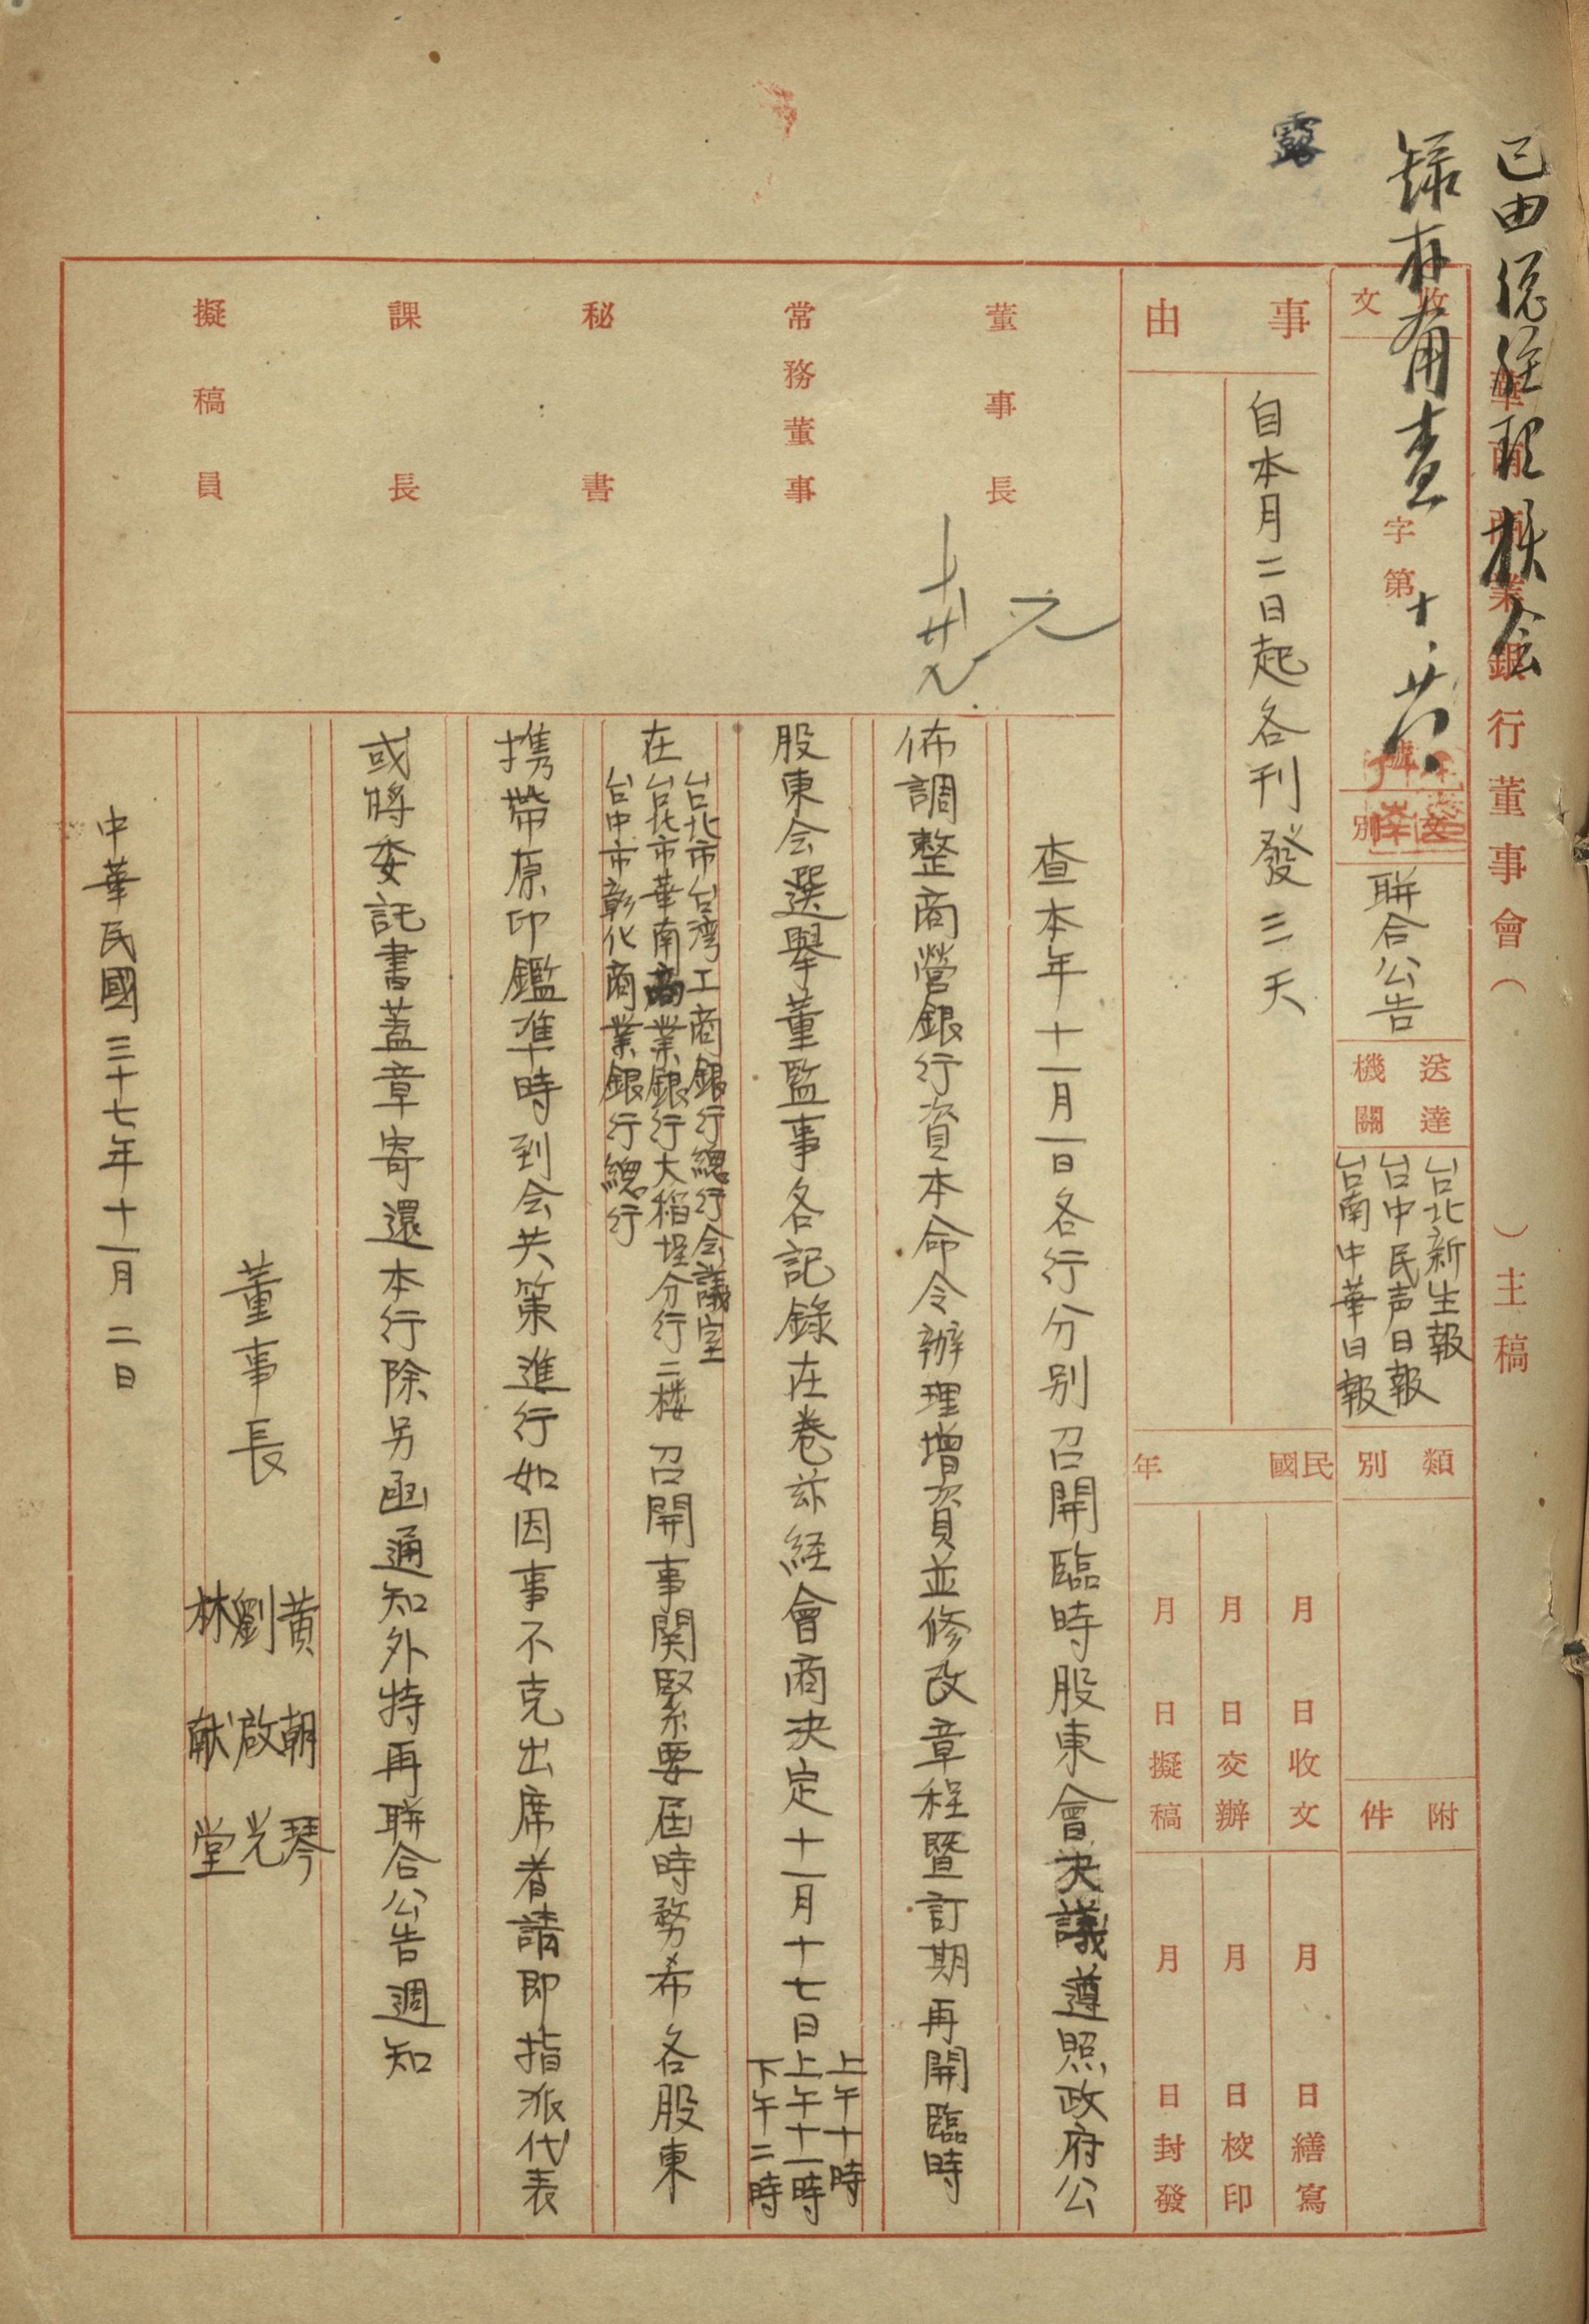 已由總經理核會
錄存備查
十.廿八
露
華南商業銀行董事會（　）主稿
收文
字第　號
文別
聯合公告
送達機關
台北新生報
台中民声日報
台南中華日報
類別
附件
事由
自本月二日起各刊發三天
民國　年
月　日收文
月　日交辦
月　日擬稿
月　日繕寫
月　日校印
月　日封發
董事長
常務董事
秘書
課長
擬稿員
查本年十一月一日各行分別召開臨時股東會決議遵照政府公
佈調整商營銀行資本命令辦理增資並修改章程暨訂期再開臨時
股東会選舉董監事各記錄在卷茲経會商決定十一月十七日
上午十時
上午十一時
下午二時
在
台北市台湾工商銀行總行会議室
台北市華南商業銀行大稻埕分行二楼
台中市彰化商業銀行總行
召開事関緊要屆時務希各股東
携帶原印鑑準時到会共策進行如因事不克出席者請即指派代表
或將委託書蓋章寄還本行除另函通知外特再聯合公告週知
董事長
黄朝琴
劉啟光
林献堂
中華民國三十七年十一月二日